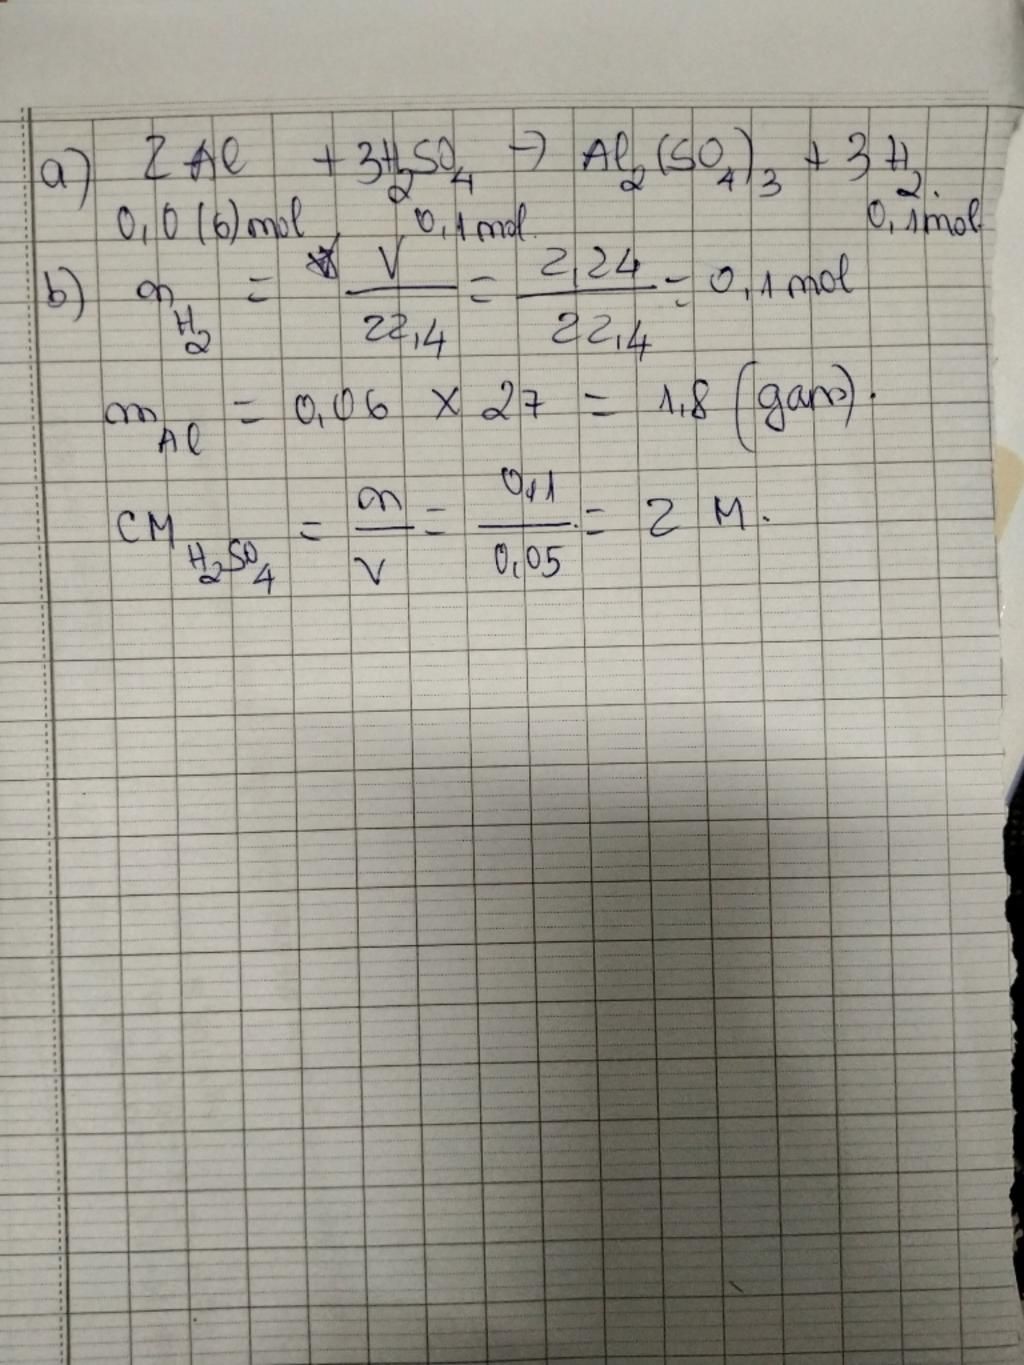 a) 2Al + 3H₂SO₄ → Al₂(SO₄)₃ + 3H₂.
0,0(6)mol 0,1mol. 0,1mol
b) n H₂ = V/22,4 = 2,24/22,4 = 0,1mol
m Al = 0,06 × 27 = 1,8 (gam).
CM H₂SO₄ = n/V = 0,1/0,05 = 2 M.